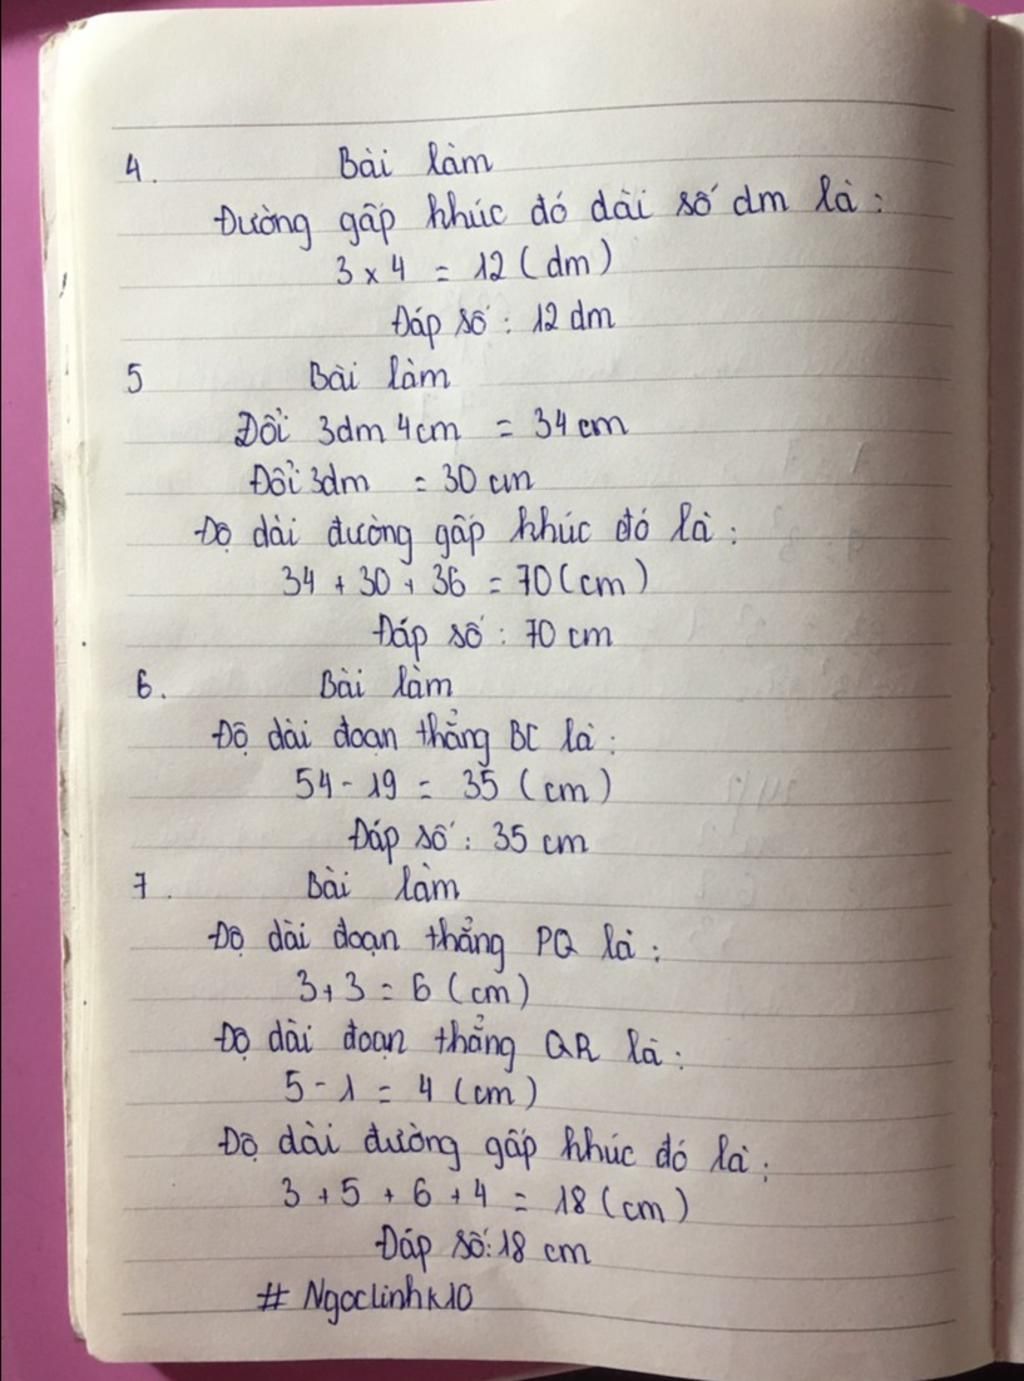 4. Bài làm
Đường gấp khúc đó dài số dm là:
3 x 4 = 12 (dm)
Đáp số: 12 dm
5 Bài làm
Đổi 3dm 4cm = 34 cm
Đổi 3dm = 30 cm
Độ dài đường gấp khúc đó là:
34 + 30 + 36 = 70 (cm)
Đáp số: 70 cm
6. Bài làm
Độ dài đoạn thẳng BC là:
54 - 19 = 35 (cm)
Đáp số: 35 cm
7. Bài làm
Độ dài đoạn thẳng PQ là:
3 + 3 = 6 (cm)
Độ dài đoạn thẳng QR là:
5 - 1 = 4 (cm)
Độ dài đường gấp khúc đó là:
3 + 5 + 6 + 4 = 18 (cm)
Đáp số: 18 cm
# Ngoclinhk10